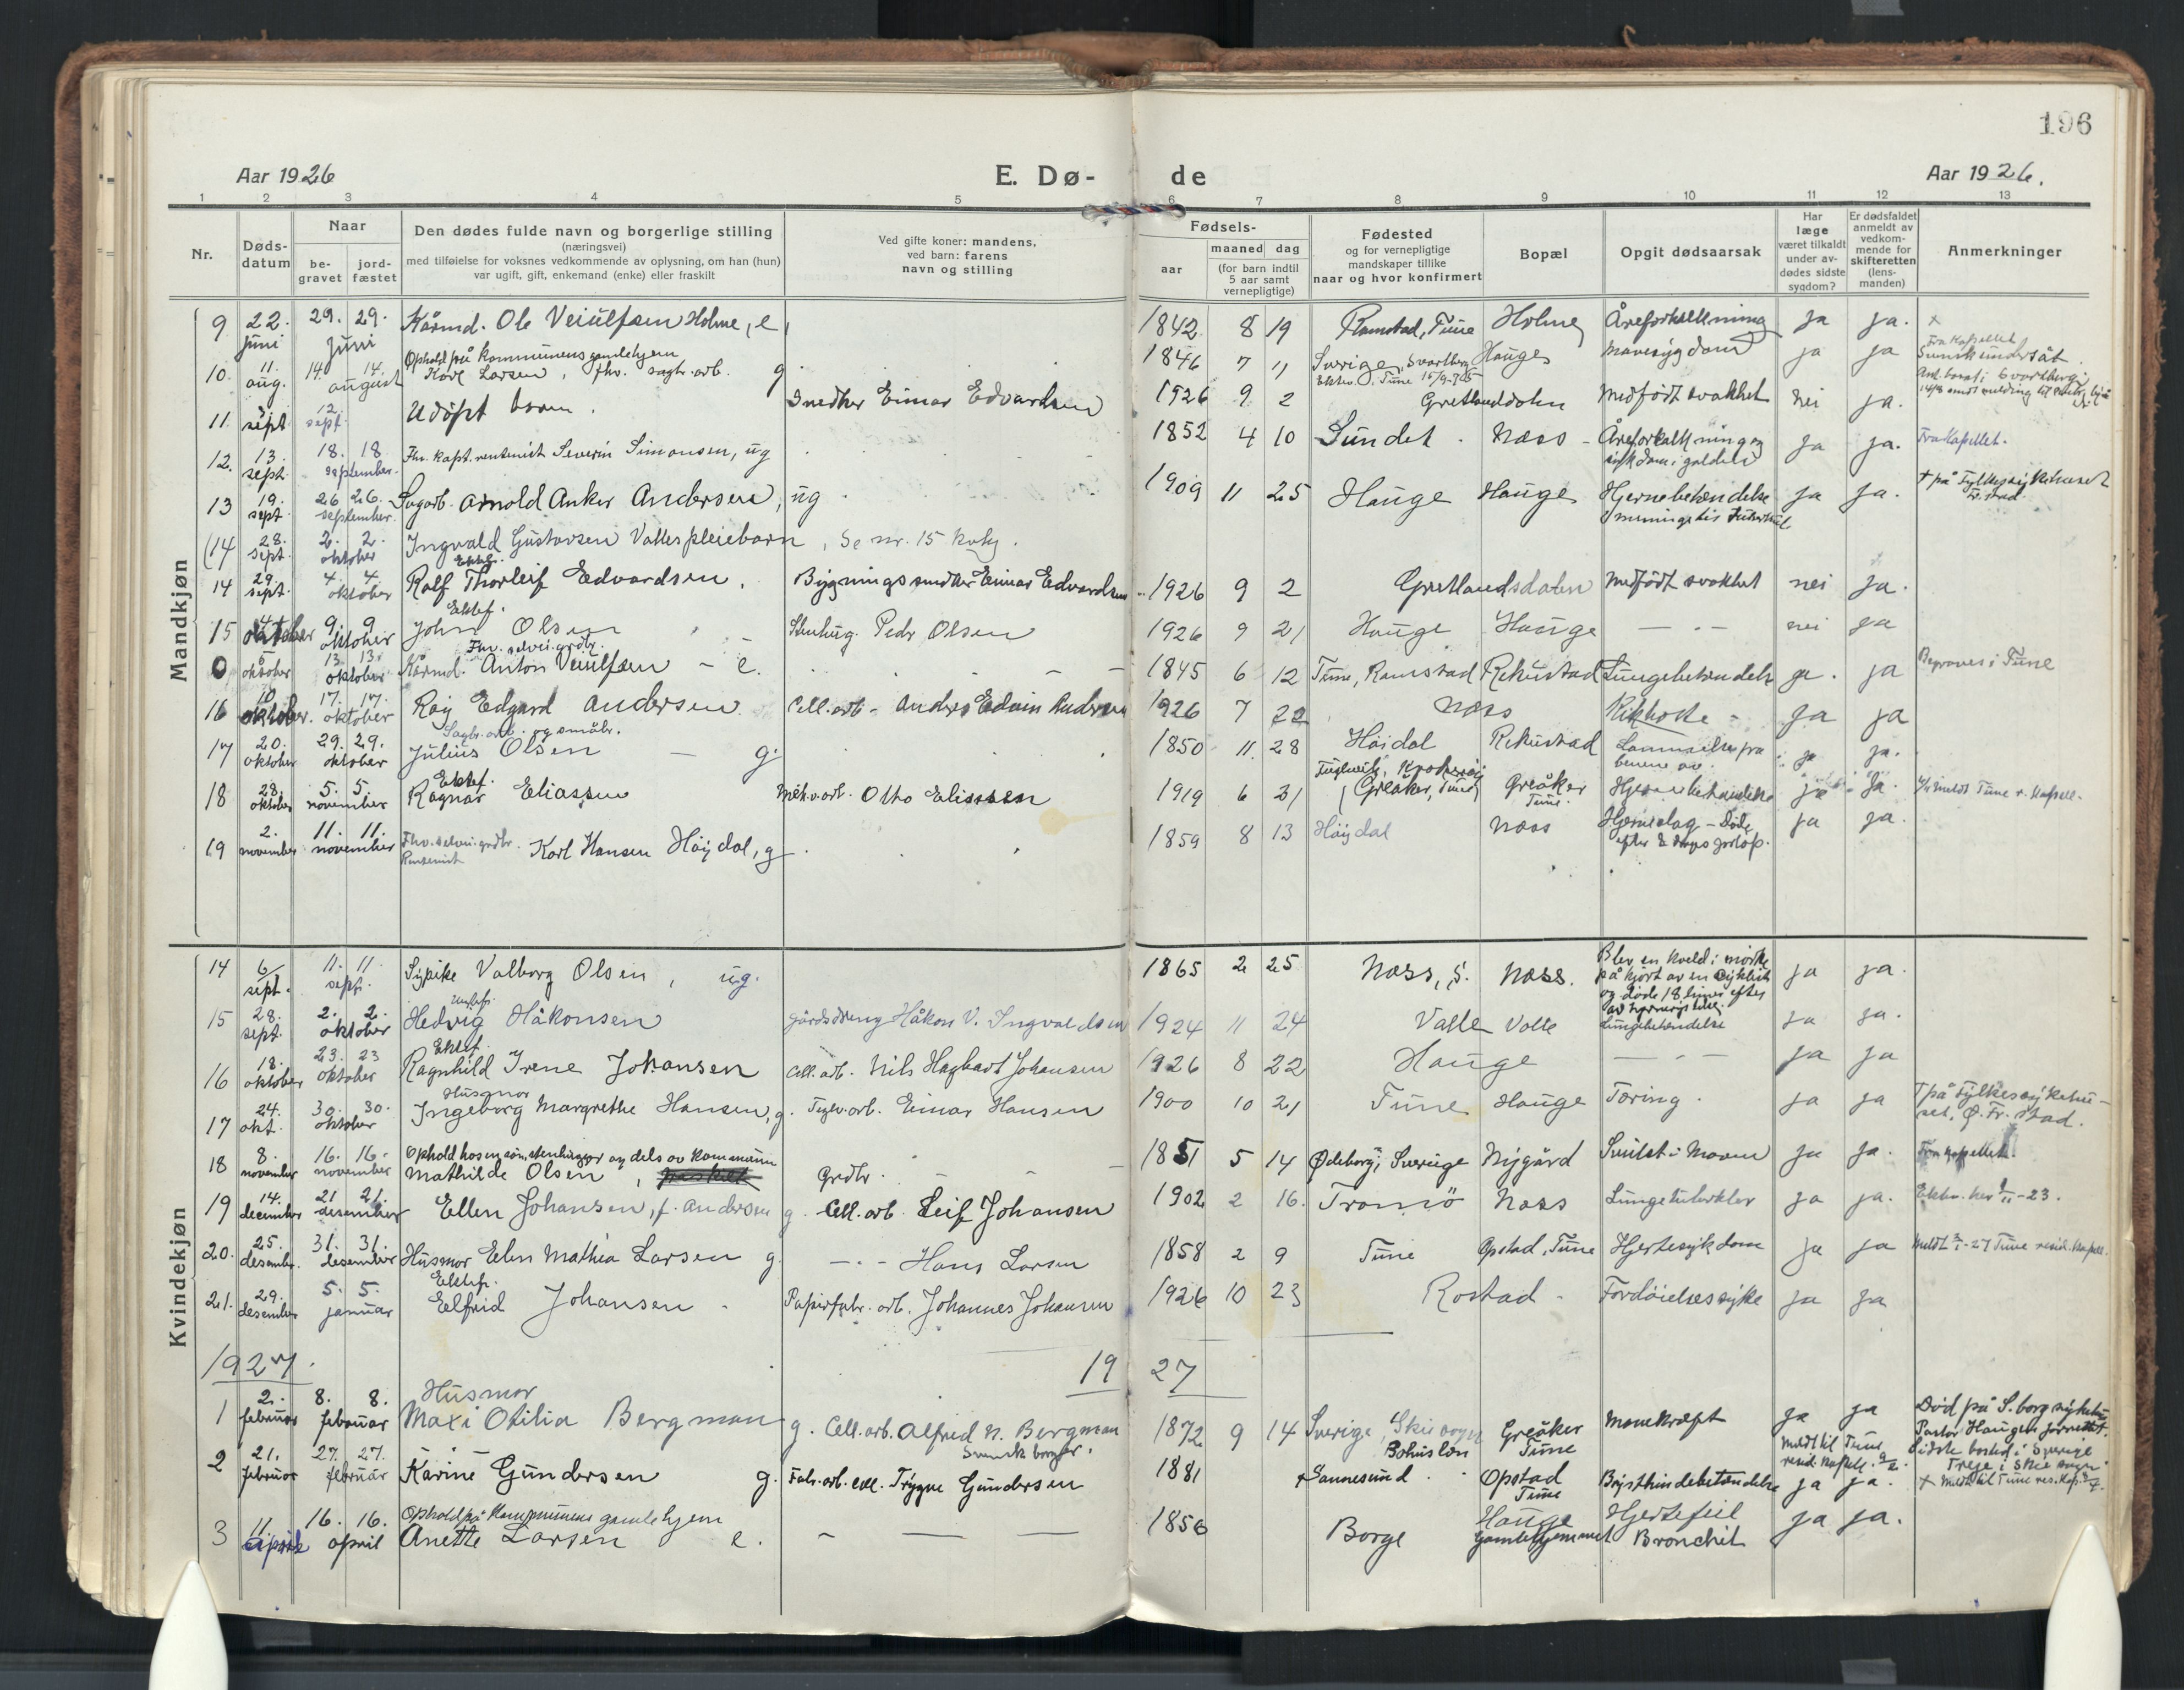 196
Aar 1926
E. Dø-
de
Aar 1926.
1 2 3 4 5 6 7 8 9 10 11 12 13
Nr.
Døds-
datum
Naar
be-
gravet
jord-
fæstet
Den dødes fulde navn og borgerlige stilling
(næringsvei)
med tilføielse for voksnes vedkommende av oplysning, om han (hun)
var ugift, gift, enkemand (enke) eller fraskilt
Ved gifte koner: mandens,
ved barn: farens
navn og stilling
Fødsels-
aar
maaned dag
(for barn indtil
5 aar samt
vernepligtige)
Fødested
og for vernepligtige
mandskaper tillike
naar og hvor konfirmert
Bopæl
Opgit dødsaarsak
Har
læge
været tilkaldt
under av-
dødes sidste
sygdom?
Er dødsfaldet
anmeldt av
vedkom-
mende for
skifteretten
(lens-
manden)
Anmerkninger
Mandkjøn
9 22. juni 29. 29. juni Kårmd. Ole Veiulfsen Holme, e, 1842 8 19 Ramstad, Tune Holme Åreforkalkning ja ja. x
Ophold på kommunens gamlehjem
10. 11. aug. 14. 14. august Karl Larsen, fhv. sagbr. arb. g 1846 7 11 Sverige, Svartberg Hauge Mavesygdom ja ja Fra Kapellet
Svensk undersåt.
11. 9 sept 12. sept. Udöpt barn. Snedker Einar Edvardsen 1926 9 2 Gretlanddalen Medfödt svakhet nei ja.
12. 13. sept. 18. 18 september. Fhv. kapt. rentenist Severin Simonsen, ug 1852 4 10 Sundet. Næss - Åreforkalkning og
sykdom i galden ja ja. Fra Kapellet.
13 19. sept. 26 26. september. Sagarb. Arnold Anker Andersen, ug 1909 11 25 Hauge Hauge Hjernebetendelse
ja ja. + på Fylkessykehuset
Fr.stad.
(14 28. sept. 2. 2. oktober Ingvald Gustavsen Valles pleiebarn, Se nr. 15 kvkj.
Ektef.
14 29. sept. 4. 4. oktober Ralf Thorleif Edvardsen. Bygningssnedker Einar Edvardsen 1926 9 2 Gretlandsdalen Medfödt svakhet nei ja.
Ektef.
15 4. oktober 9. 9. oktober John Olsen Stenhug. Peder Olsen 1926 9 21 Hauge Hauge — " — nei ja
Fhv. selvei. grdbr.
0 5 oktober 13 13. oktober Kårmd. Anton Veiulfsen - e. 1845 6 12 Tune, Ramstad Rekustad Lungebetendelse ja. ja Begraves i Tune
16 10 oktober. 17. 17. oktober Roy Edgard Andersen Cell. arb. Anders Edvin Andersen 1926 7 22 Næss Kikhoste - ja ja
Sagbr. arb. og småbr.
17 20. oktober 29. 29. oktober Julius Olsen — g. 1850 11. 28 Höidal Rekustad Lammelse fra
benene av. ja ja.
Ektef.
18 28. oktober 5. 5. november Ragnar Eliassen Mek. v. arb. Otto Eliassen 1919 6 31 Greåker, Tune Greåker
Tune. Hjernebetendelse ja ja.
19 2. november 11. 11. november Fhv. selvei. grdbr.
Rentenist Karl Hansen Höydal, g 1859 8 13 Höydal Næss Hjerneslag - döde
efter 2 dages forlöp. ja ja.
Kvindekjøn
14 6/ sept. 11. 11. sept. Sypike Valborg Olsen, ug. 1865 2 25 Næss, S. Næss. Blev en kveld i mörke
påkjört av en cyklist
og döde 18 timer efter
av hjernerystelse. ja ja.
15 28. sept. 2. 2. oktober Hedvig Håkonsen gårdsdreng Håkon V. Ingvaldsen 1924 11 24 Valle Valle Lungebetendelse ja ja.
Ektef.
16 18. oktober 23. 23 oktober Ragnhild Irene Johansen Cell. arb. Nils Hagbart Johansen 1926 8 22 Hauge — " — ja ja
Husmor
17 24. okt. 30. 30. oktober Ingeborg Margrethe Hansen, g. Teglv. arb. Einar Hansen 1900 10 21 Tune Hauge Tæring. ja ja † på Fylkessykehu-
set, Ø. Fr.stad.
Ophold hos en sön, stenhugger og dels av kommunen
18 8. november 16. 16. november Mathilde Olsen, fraskilt Grdbr. 1851 5 14 Ødeborg, Sverige Nygård Svulst i Maven ja ja. Fra kapellet.
19 14. december 21 21. desember Ellen Johansen, f. Andersen g. Cell. arb. Leif Johansen 1902 2 16. Tromö Næss Lungetuberkler ja ja. Ektev. her
20. 25. desember. 31. 31. desember Husmor Elen Mathea Larsen g. — " — Hans Larsen 1858 2 9 Tune Opstad, Tune Hjertesykdom ja ja
Ektef.
21. 29. desember 5. 5. januar Elfrid Johansen - Papirfabr. arb. Johannes Johansen 1926 10 23 Rostad - Fordöielsessyke ja ja
1927. 19 27
Husmor
1 2. februar 8. 8. februar Maxi Otilia Bergman g. Cell. arb. Alfred N. Bergman
Svensk borger. 1872 9 14 Sverige, Skee sogn
Bohuslen Greåker
Tune Mavekræft ja ja Död på S.borg sykehus
2 21. februar 27. 27. februar Karine Gundersen g. Fabr. arb. cell. Trygve Gundersen 1881 Sannesund Opstad
Tune Brysthindebetendelse ja ja.
Ophold på Kommunens gamlehjem
3 11. april 16. 16. april Anette Larsen e. 1856 Borge Hauge
Gamlehjemmet Hjertefeil
Bronchit ja ja.